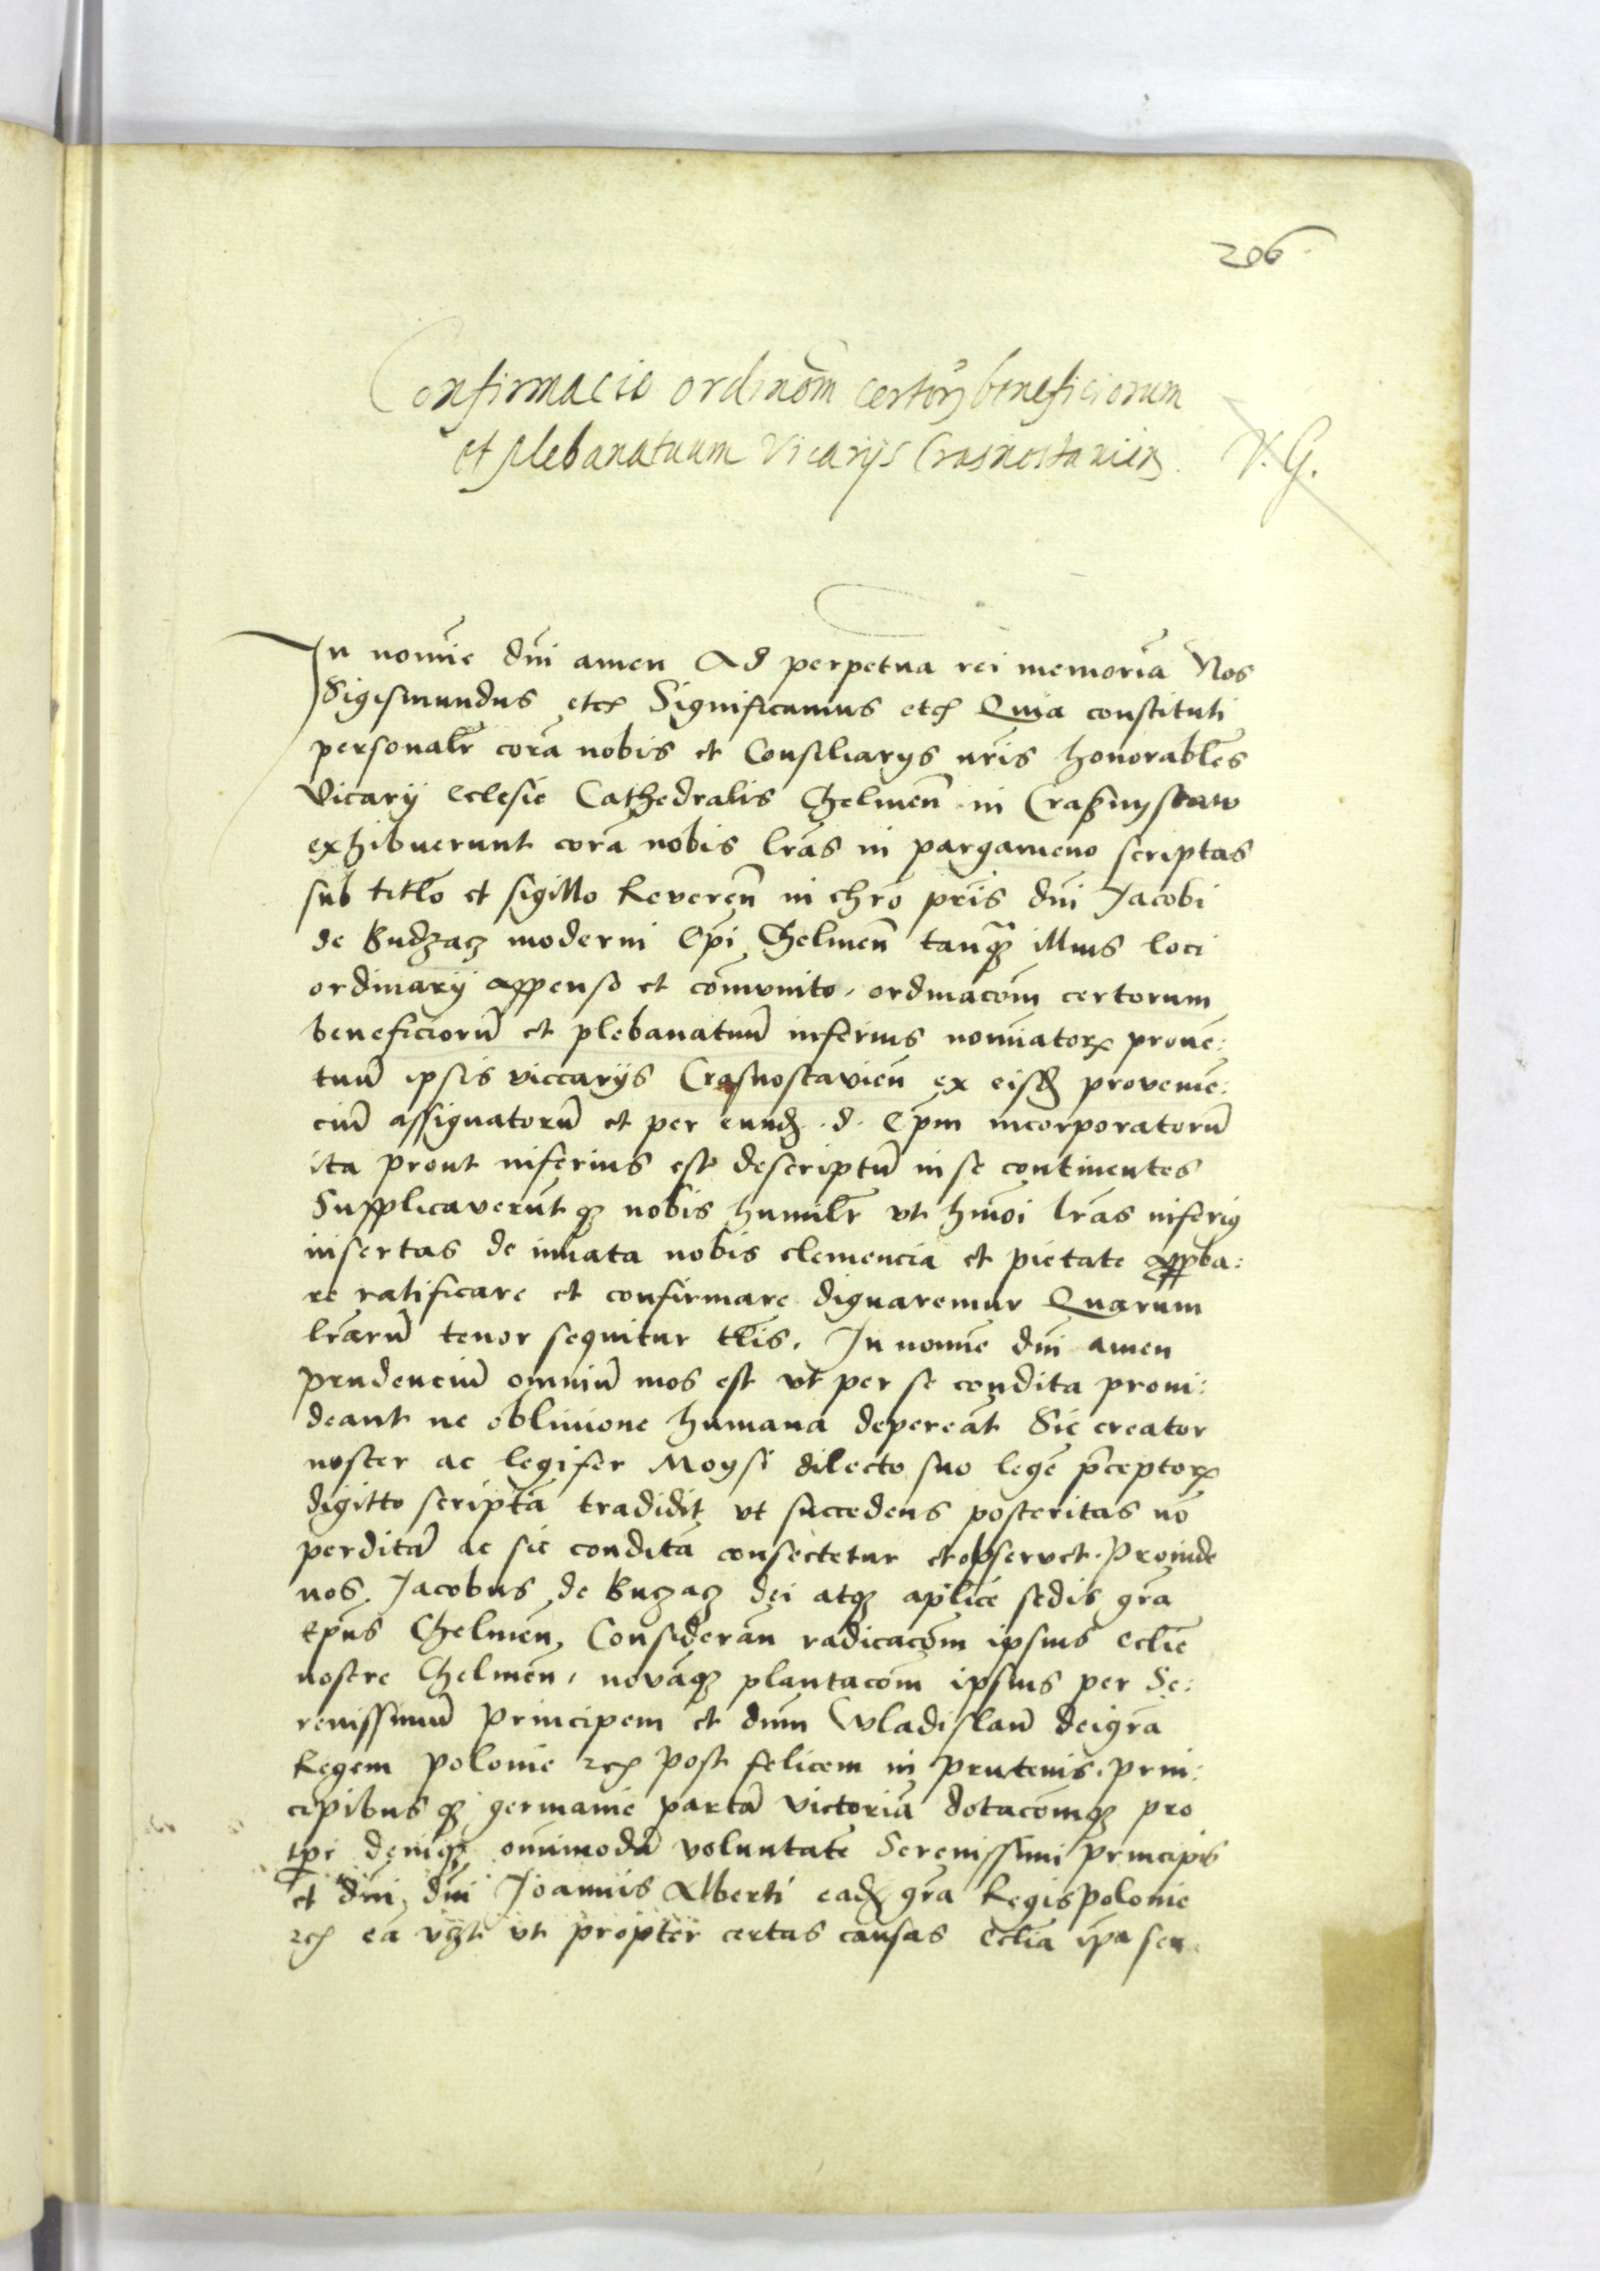 206
Confirmacio ordinõm certorꝝ beneficiorum
et plebanatuum Vicarijs Crasnostavien̄
V. G.
In nomīe dn̄i amen Ad perpetua rei memoriā Nos
Sigismundus etcꝭ Significamus etcꝭ Quia constituti
personalr̄ corā nobis et Consiliarijs nr̄is honorabl̄es
Vicarij Eclesie Cathedralis Chelmen̄ in Crasznystaw
exhibuerunt corā nobis lr̄as in pargameno scriptas
sub titl̄o et sigillo Reveren̄ in chr̄o pr̄is dn̄i Jacobi
de Budzacz moderni Ep̄i Chelmen̄ tanqꝫ illius loci
ordinarij appenso et com̄unito, ordinacōm certorum
beneficiorū et plebanatuū inferius nomīatorꝝ prove:
tuū ipsis viccarijs Crasnostavien̄ ex eisdꝫ provenie:
ciū assignatorū et per eundꝫ . d . Ep̄m incorporatorū
ita prout inferius est descriptū in se continentes
Supplicaverūnt qꝫ nobis humilr̄ vt hm̄oi lr̄as inferiꝯ
insertas de innata nobis clemencia et pietate appba:
re ratificare et confirmare dignaremur Quarum
lr̄arū tenor sequitur tl̄is. In nomīe dn̄i amen
prudenciū omniū mos est vt per se condita provi:
deant ne oblivione humana depereāt Sic creator
noster ac legifer Moysi dilecto suo legē p̄ceptorꝝ
digitto scriptā tradidit vt succedens posteritas nō
perditā ac sic conditā consectetur et observet. Proinde
nos Jacobus de Buczacz dei atqꝫ aplice sedis gr̄a
Ep̄us Chelmen̄, Considerān radicacōm ipsius eclīe
nostre Chelmen̄, novāqꝫ plantacōm ipsius per Se:
renissimū Principem et dn̄m Wladislaū dei gr̄a
Regem Polonie ꝛcꝭ post felicem in Prutenis, prin:
cipibus qꝫ germanie partā victoriā dotacōmqꝫ pro
tp̄r deniqꝫ om̄nimodā voluntatē Serenissimi principis
et dn̄i, dn̄i Joannis Alberti eadꝫ gr̄a Regis Polonie
ꝛcꝭ eā vꝫt vt propter certas causas Eclīa ip̄a seu